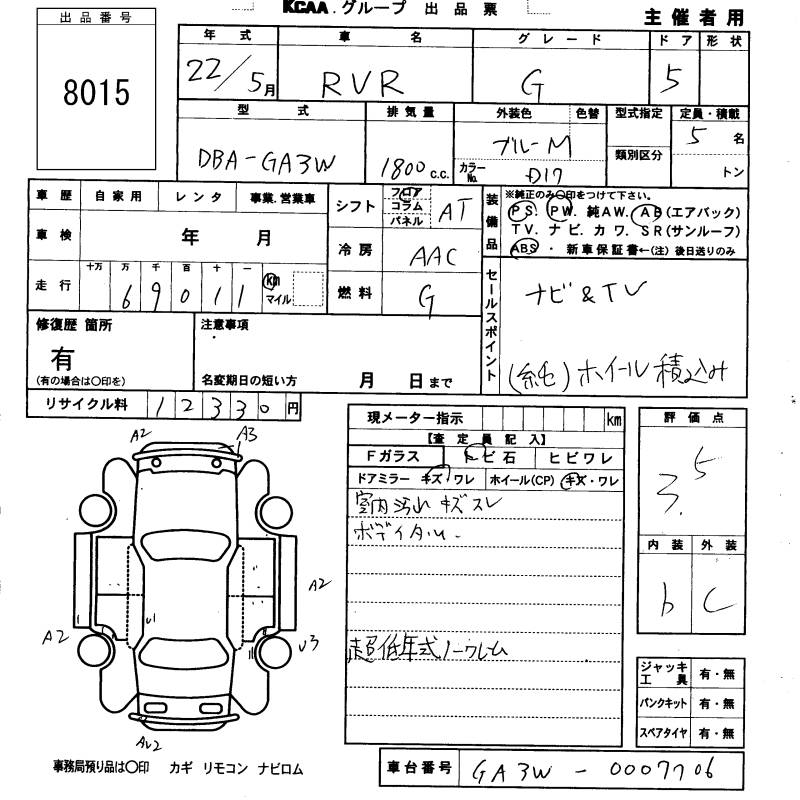 KCAA.グループ 出品票
主催者用
出品番号
8015
年式 車名 グレード ドア 形状
22/5月 RVR G 5
型式 排気量 外装色 色替 型式指定 定員・積載
DBA-GA3W 1800 c.c. ブルーM カラーNo. D17 類別区分 5名
トン
車歴 自家用 レンタ 事業.営業車
車検 年 月
走行 十万 万 千 百 十 一
69011 km マイル
シフト フロア コラム パネル AT
冷房 AAC
燃料 G
装備品
※純正のみ○印をつけて下さい。
PS. PW. 純AW. AB(エアバック)
TV. ナビ. カワ. SR(サンルーフ)
ABS ・ 新車保証書←(注)後日送りのみ
セールスポイント
ナビ&TV
(純)ホイール積込み
修復歴 箇所
有
(有の場合は○印を)
注意事項
名変期日の短い方 月 日まで
リサイクル料 12330円
現メーター指示 km
【査定員記入】
Fガラス トビ石 ヒビワレ
ドアミラー キズ・ワレ ホイール(CP) キズ・ワレ
室内汚れ キズ スレ
超低年式ノークレーム
評価点
3.5
内装 外装
b C
ジャッキ工具 有・無
パンクキット 有・無
スペアタイヤ 有・無
A2 A3
A2
v1
A2 v3
Av2
事務局預り品は○印 カギ リモコン ナビロム
車台番号 GA3W - 0007706